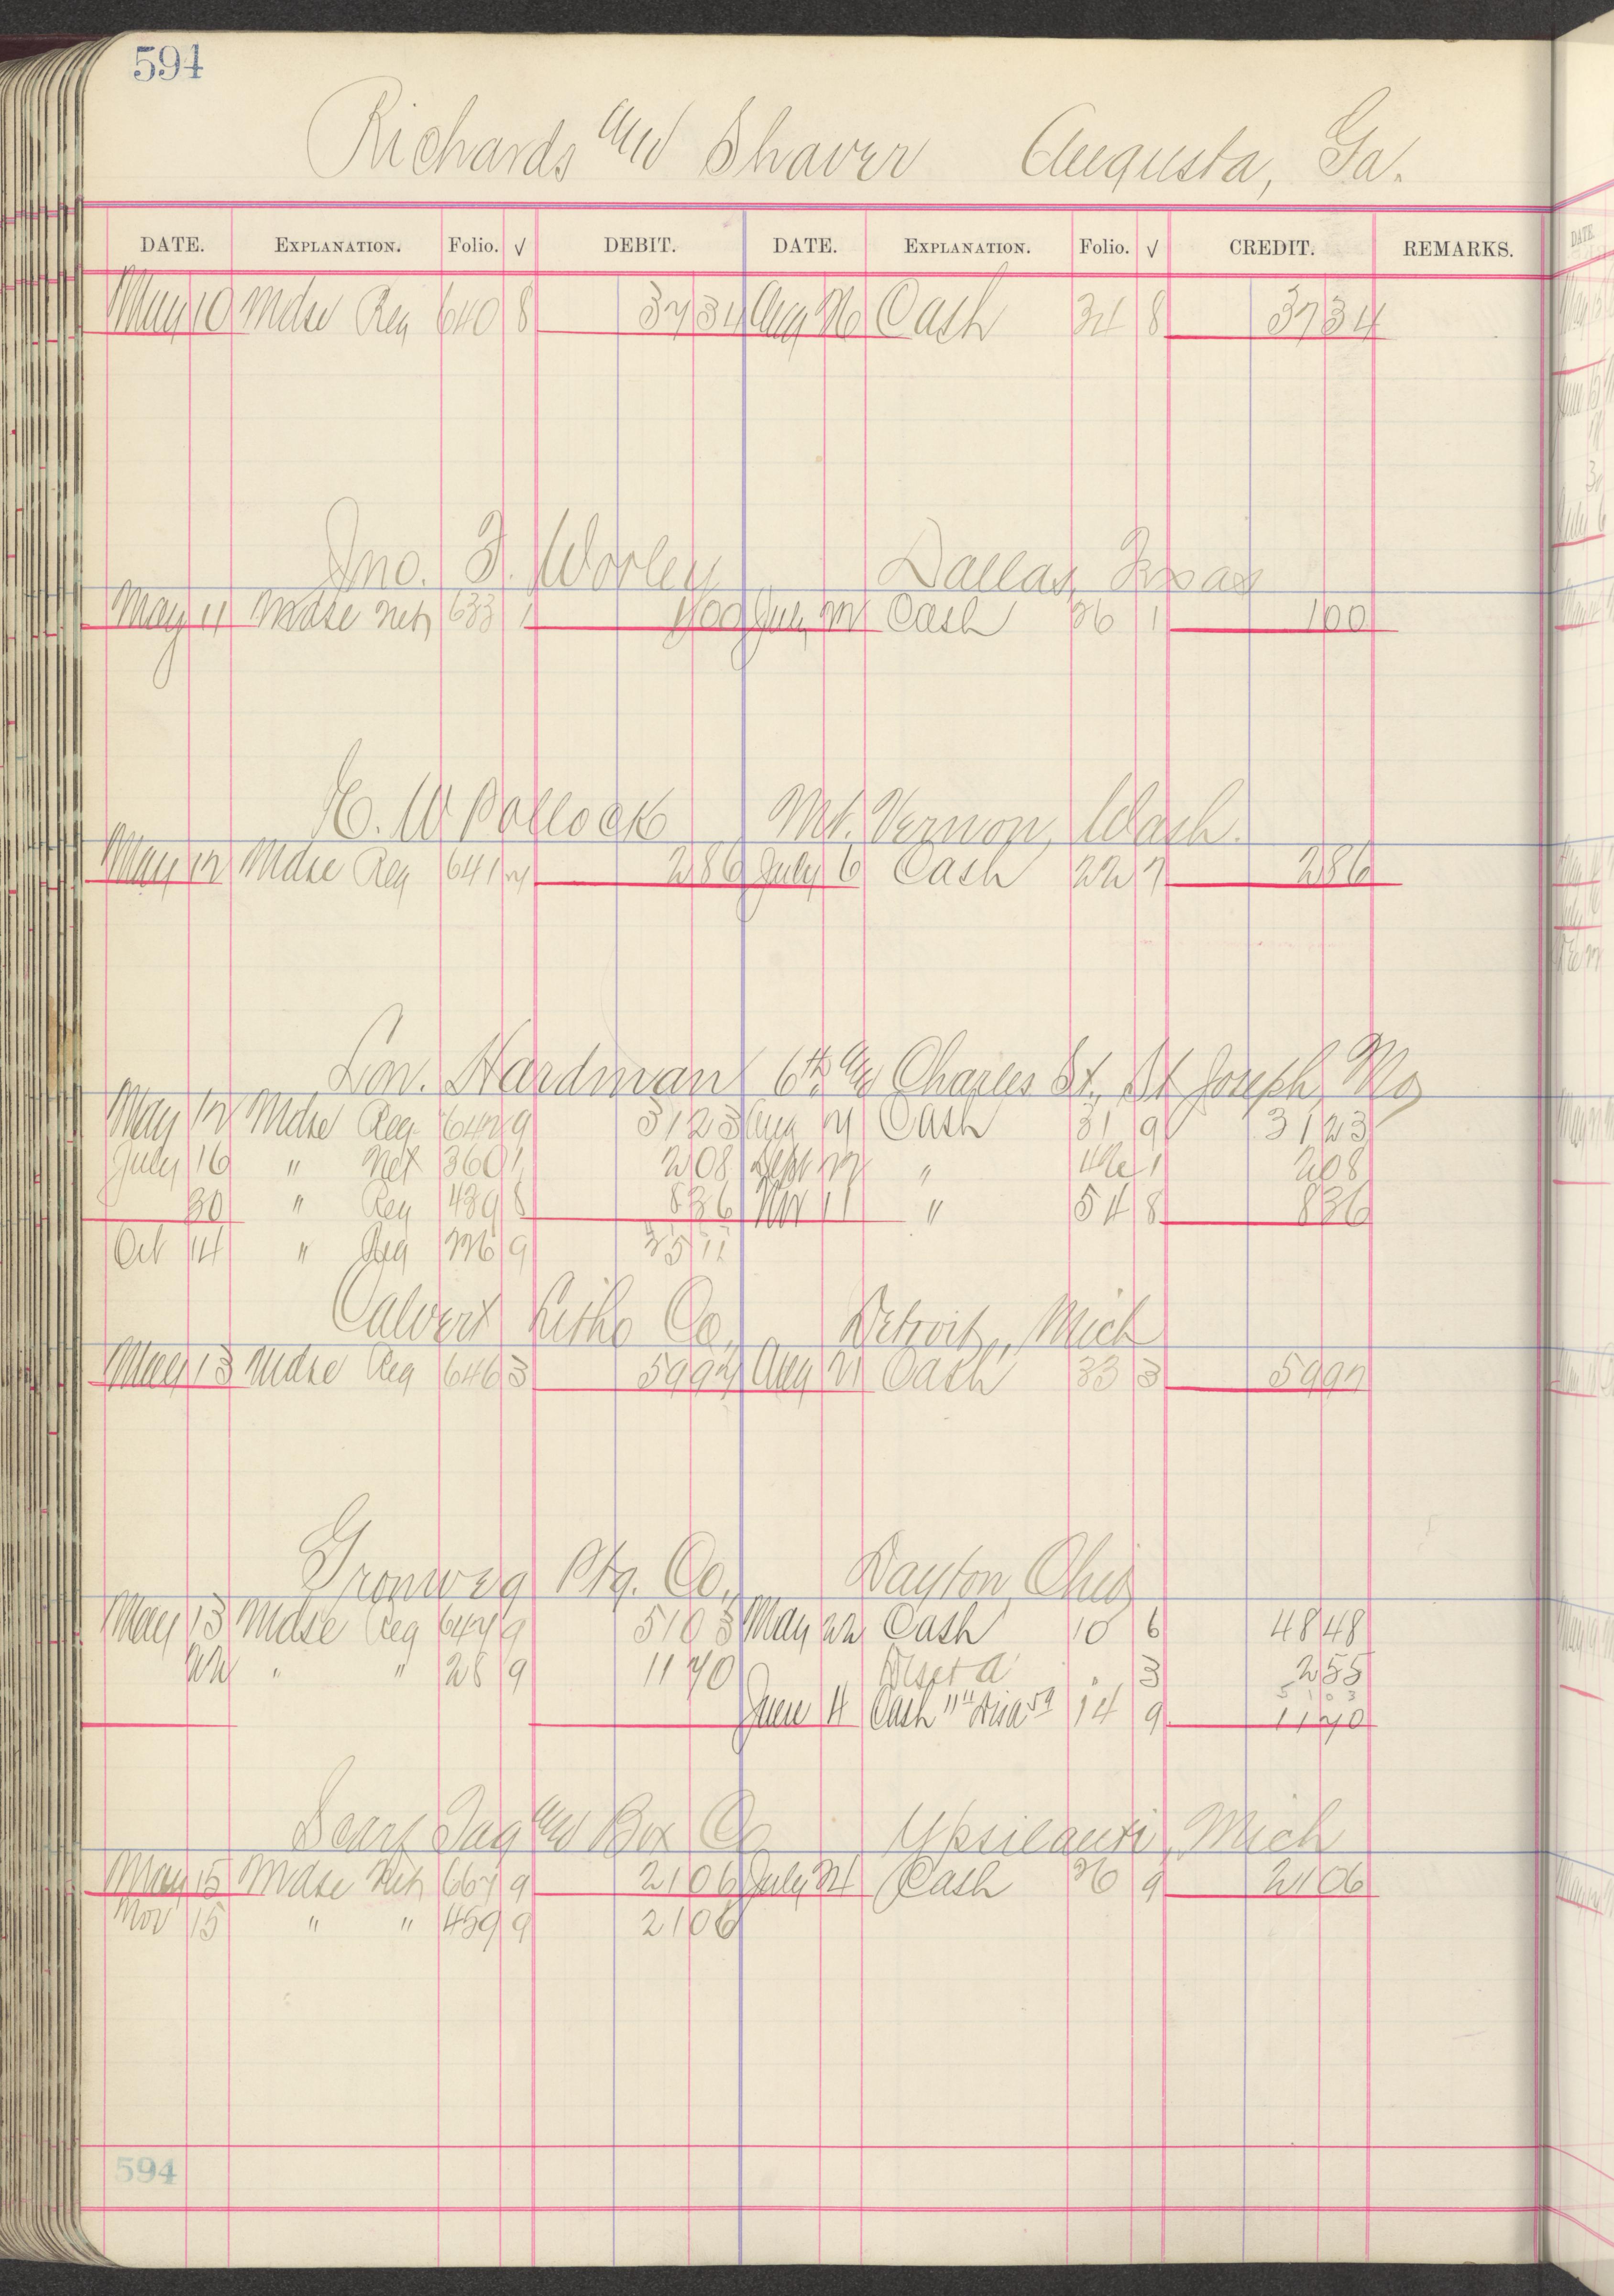 594
Richards and Shaver Augusta, Ga.
DATE. EXPLANATION. Folio. √ DEBIT. DATE. EXPLANATION. Folio. √ CREDIT. REMARKS.
May 10 Mdse Reg 640 8 3734 Aug 26 Cash 34 8 3734
Jno. F. Worley Dallas, Texas
May 11 Mdse Net 633 1 100 July Cash 26 1 100
H. W. Pollock Mt. Vernon, Wash.
May 12 Mdse Reg 641 7 286 July 6 Cash 22 7 286
Lon. Hardman 6th and Charles St., St Joseph, Mo
May 12 Mdse Reg 642 9 3123 Aug 21 Cash 31 9 3123
July 16 " Net 360 1 208 Sept " 1 208
30 " Reg 439 8 836 Nov 11 " 54 8 836
Oct 14 " Reg 9 2511
Calvert Litho Co., Detroit, Mich
May 13 Mdse Reg 646 3 5997 Aug 21 Cash 33 3 5997
Gronweg Ptg. Co., Dayton, Ohio
May 13 Mdse Reg 647 9 5103 May 22 Cash 10 6 4848
22 " " 28 9 1170 Disct a 3 255
5103
June 4 Cash 14 9 1170
Sears Tag and Box Co Ypsilanti, Mich
May 15 Mdse Net 667 9 2106 July 24 Cash 26 9 2106
Nov 15 " " 459 9 2106
594
DATE